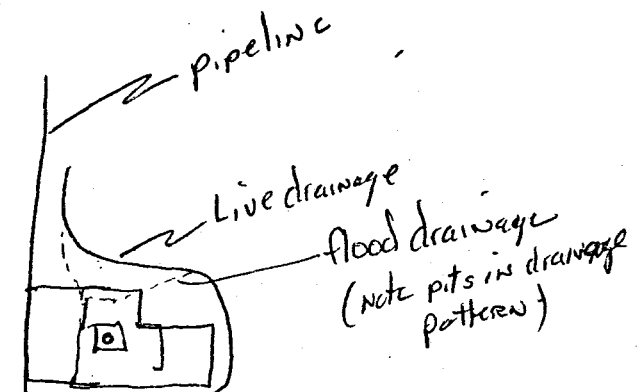 pipeline
Live drainage
flood drainage
(Note pits in drainage
pattern)